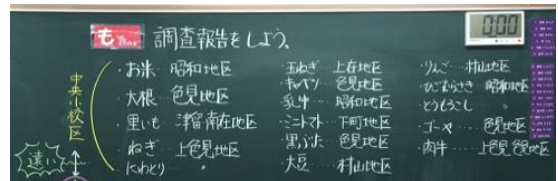 も 調査報告をしよう。
0:00
中央小校区
遠い
・お米 昭和地区
大根 色見地区
里いも 津留南在地区
ねぎ 上色見地区
にわとり 〃
玉ねぎ 上在地区
キャベツ 色見地区
乳牛 昭和地区
ミニトマト 下町地区
黒ぶた 色見地区
大豆 村山地区
・りんご 村山地区
・ひごむらさき 昭和地区
・とうもろこし 〃
・ゴーヤ 色見地区
・肉牛 上色見 色見地区